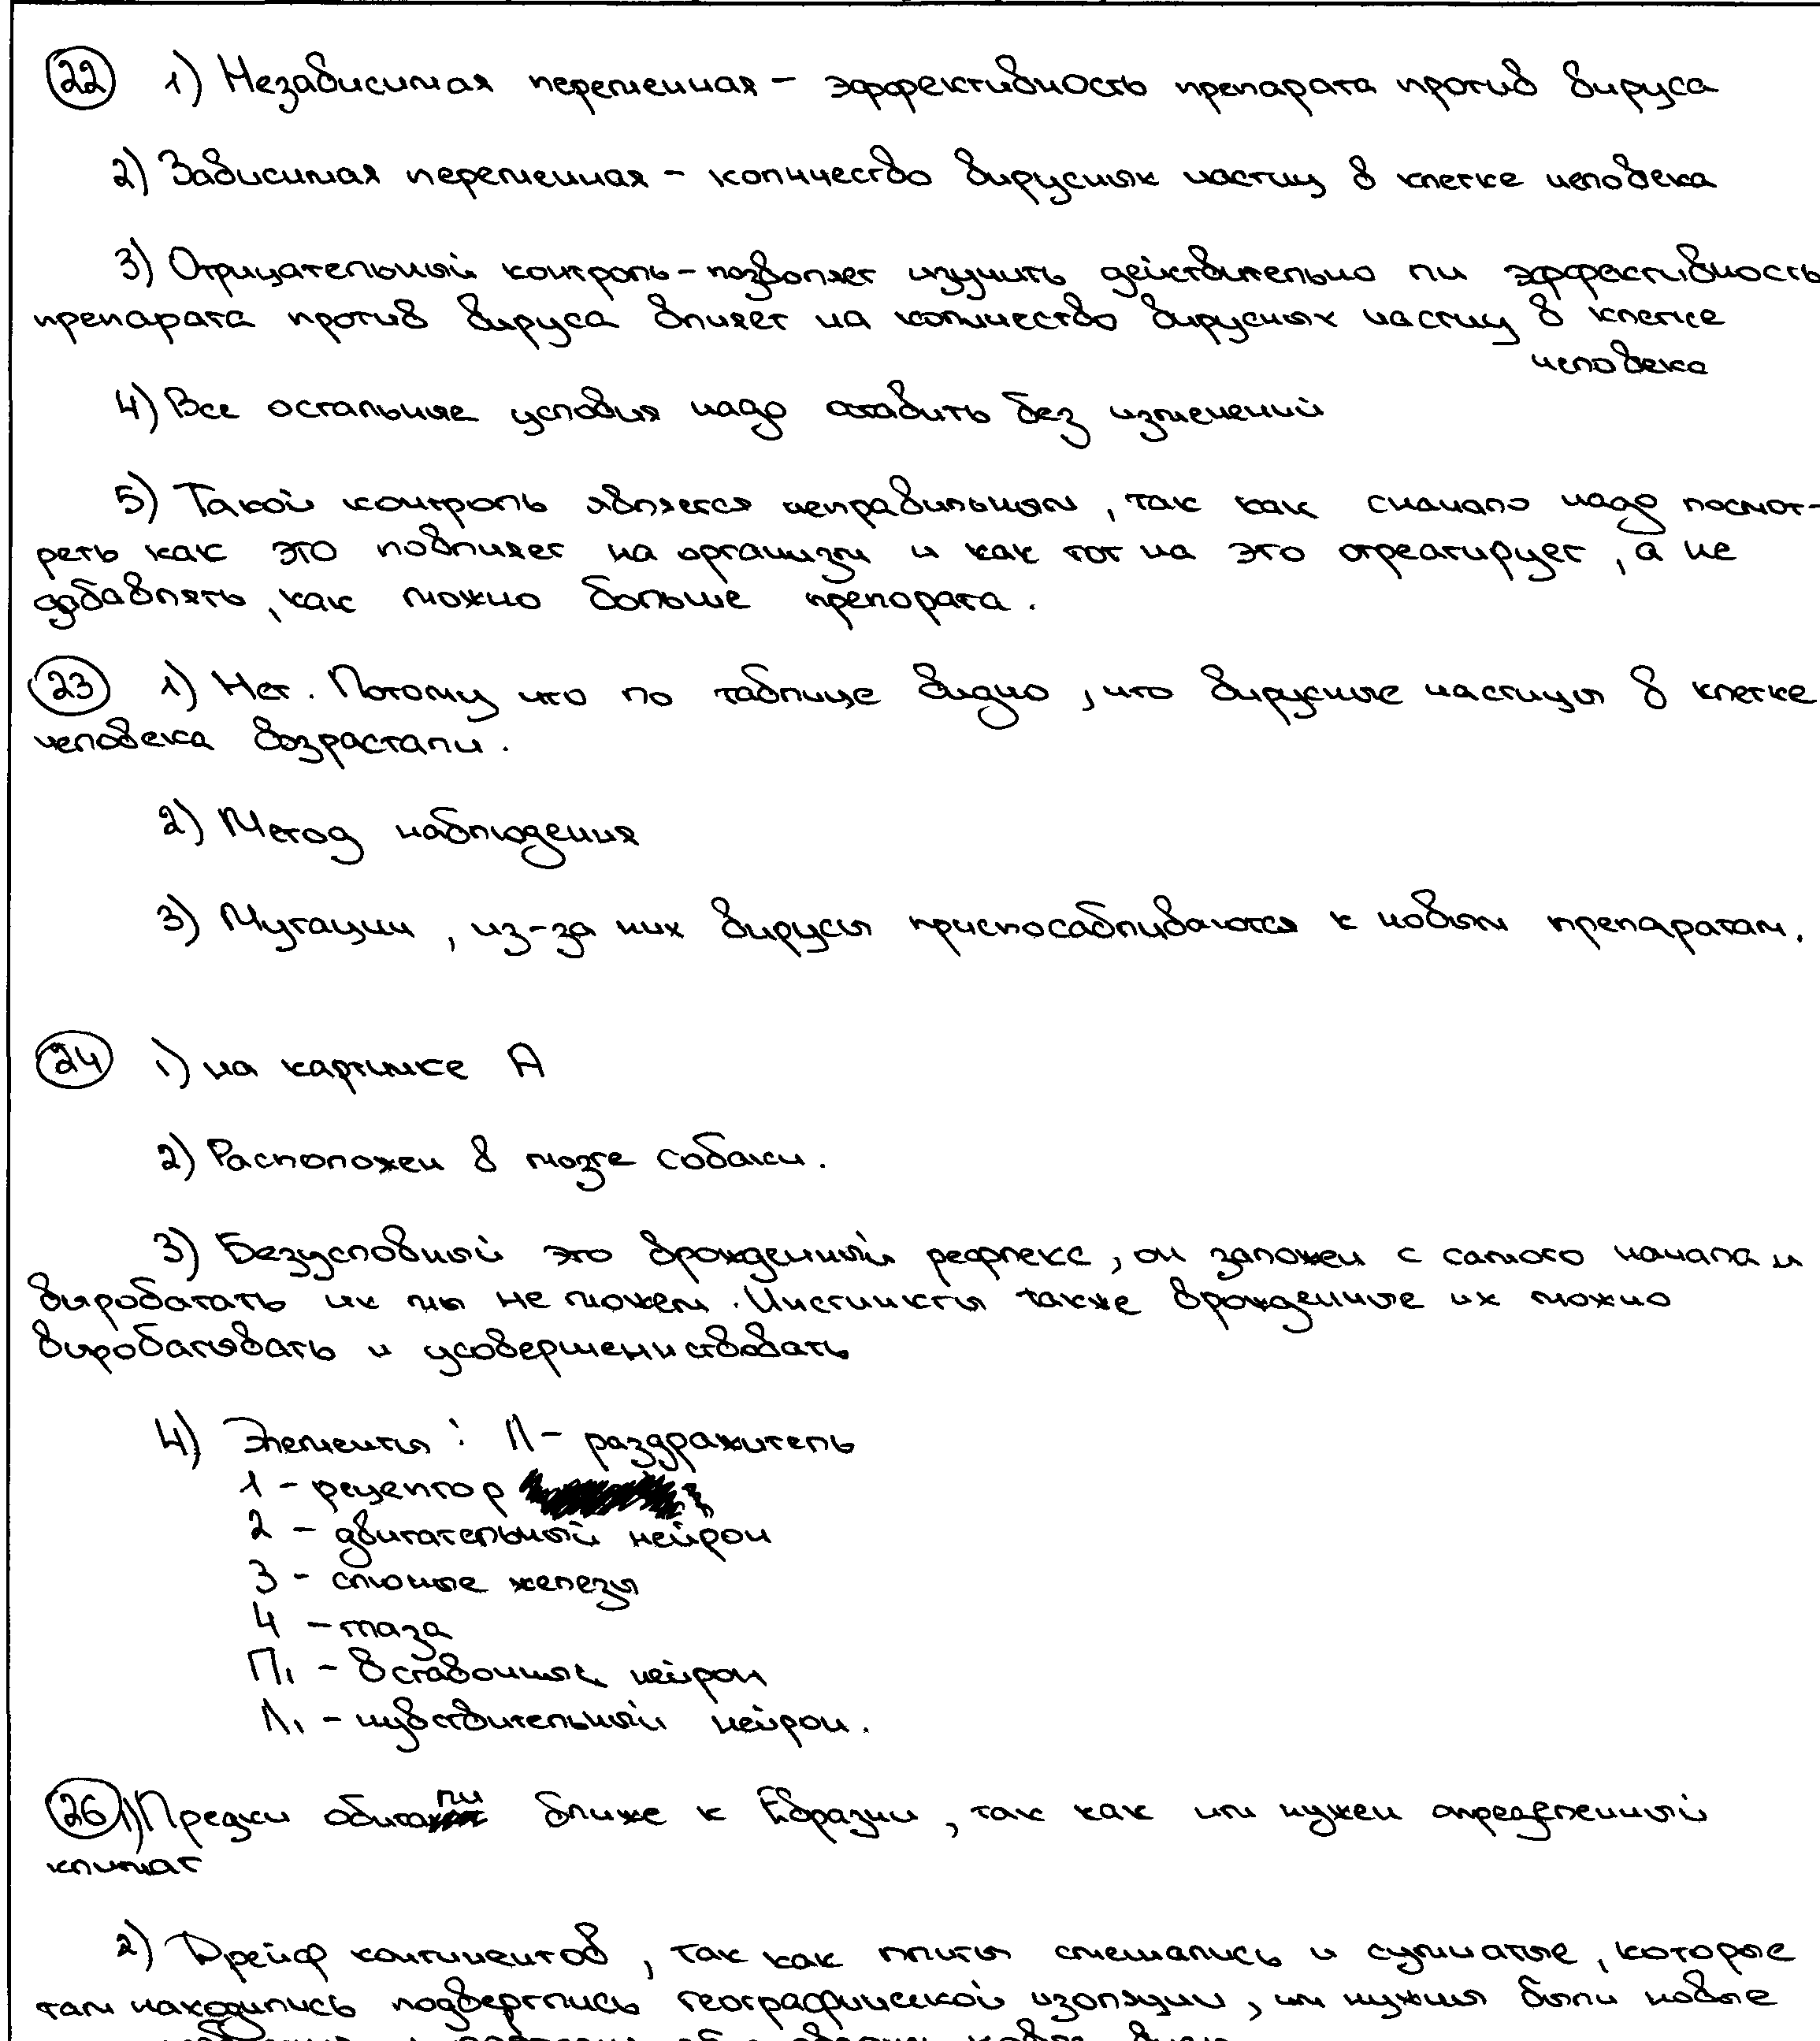 22 1) Независимая переменная – эффективность препарата против вируса
2) Зависимая переменная – количество вирусных частиц в клетке человека
3) Отрицательный контроль – позволяет изучить действительно ли эффективность
препарата против вируса влияет на количество вирусных частиц в клетке
человека
4) Все остальные условия надо оставить без изменений
5) Такой контроль является неправильным, так как сначало надо посмот-
реть как это повлияет на организм и как тот на это отреагирует, а не
добавлять, как можно больше препората.
23 1) Нет. Потому что по таблице видно, что вирусные частицы в клетке
человека возрастали.
2) Метод наблюдения
3) Мутации, из-за них вирусы приспосабливаются к новым препаратам.
24 1) на картинке А
2) Расположен в мозге собаки.
3) Безусловный это врожденный рефлекс, он заложен с самого начала и
выробатать их мы не можем. Инстинкты также врожденные их можно
выробатывать и усовершениствовать
4) Элементы: Л – раздражитель
1 – рецептор
2 – двигательный нейрон
3 – слюные железы
4 – глаза
П1 – вставочных нейрон
Л1 – чувствительный нейрон.
26 1) Предки обитали ближе к Евразии, так как им нужен определенный
климат
2) Дрейф континентов, так как плиты смешались и сумчатые, которые
там находились подверглись географической изоляции, им нужны были новые